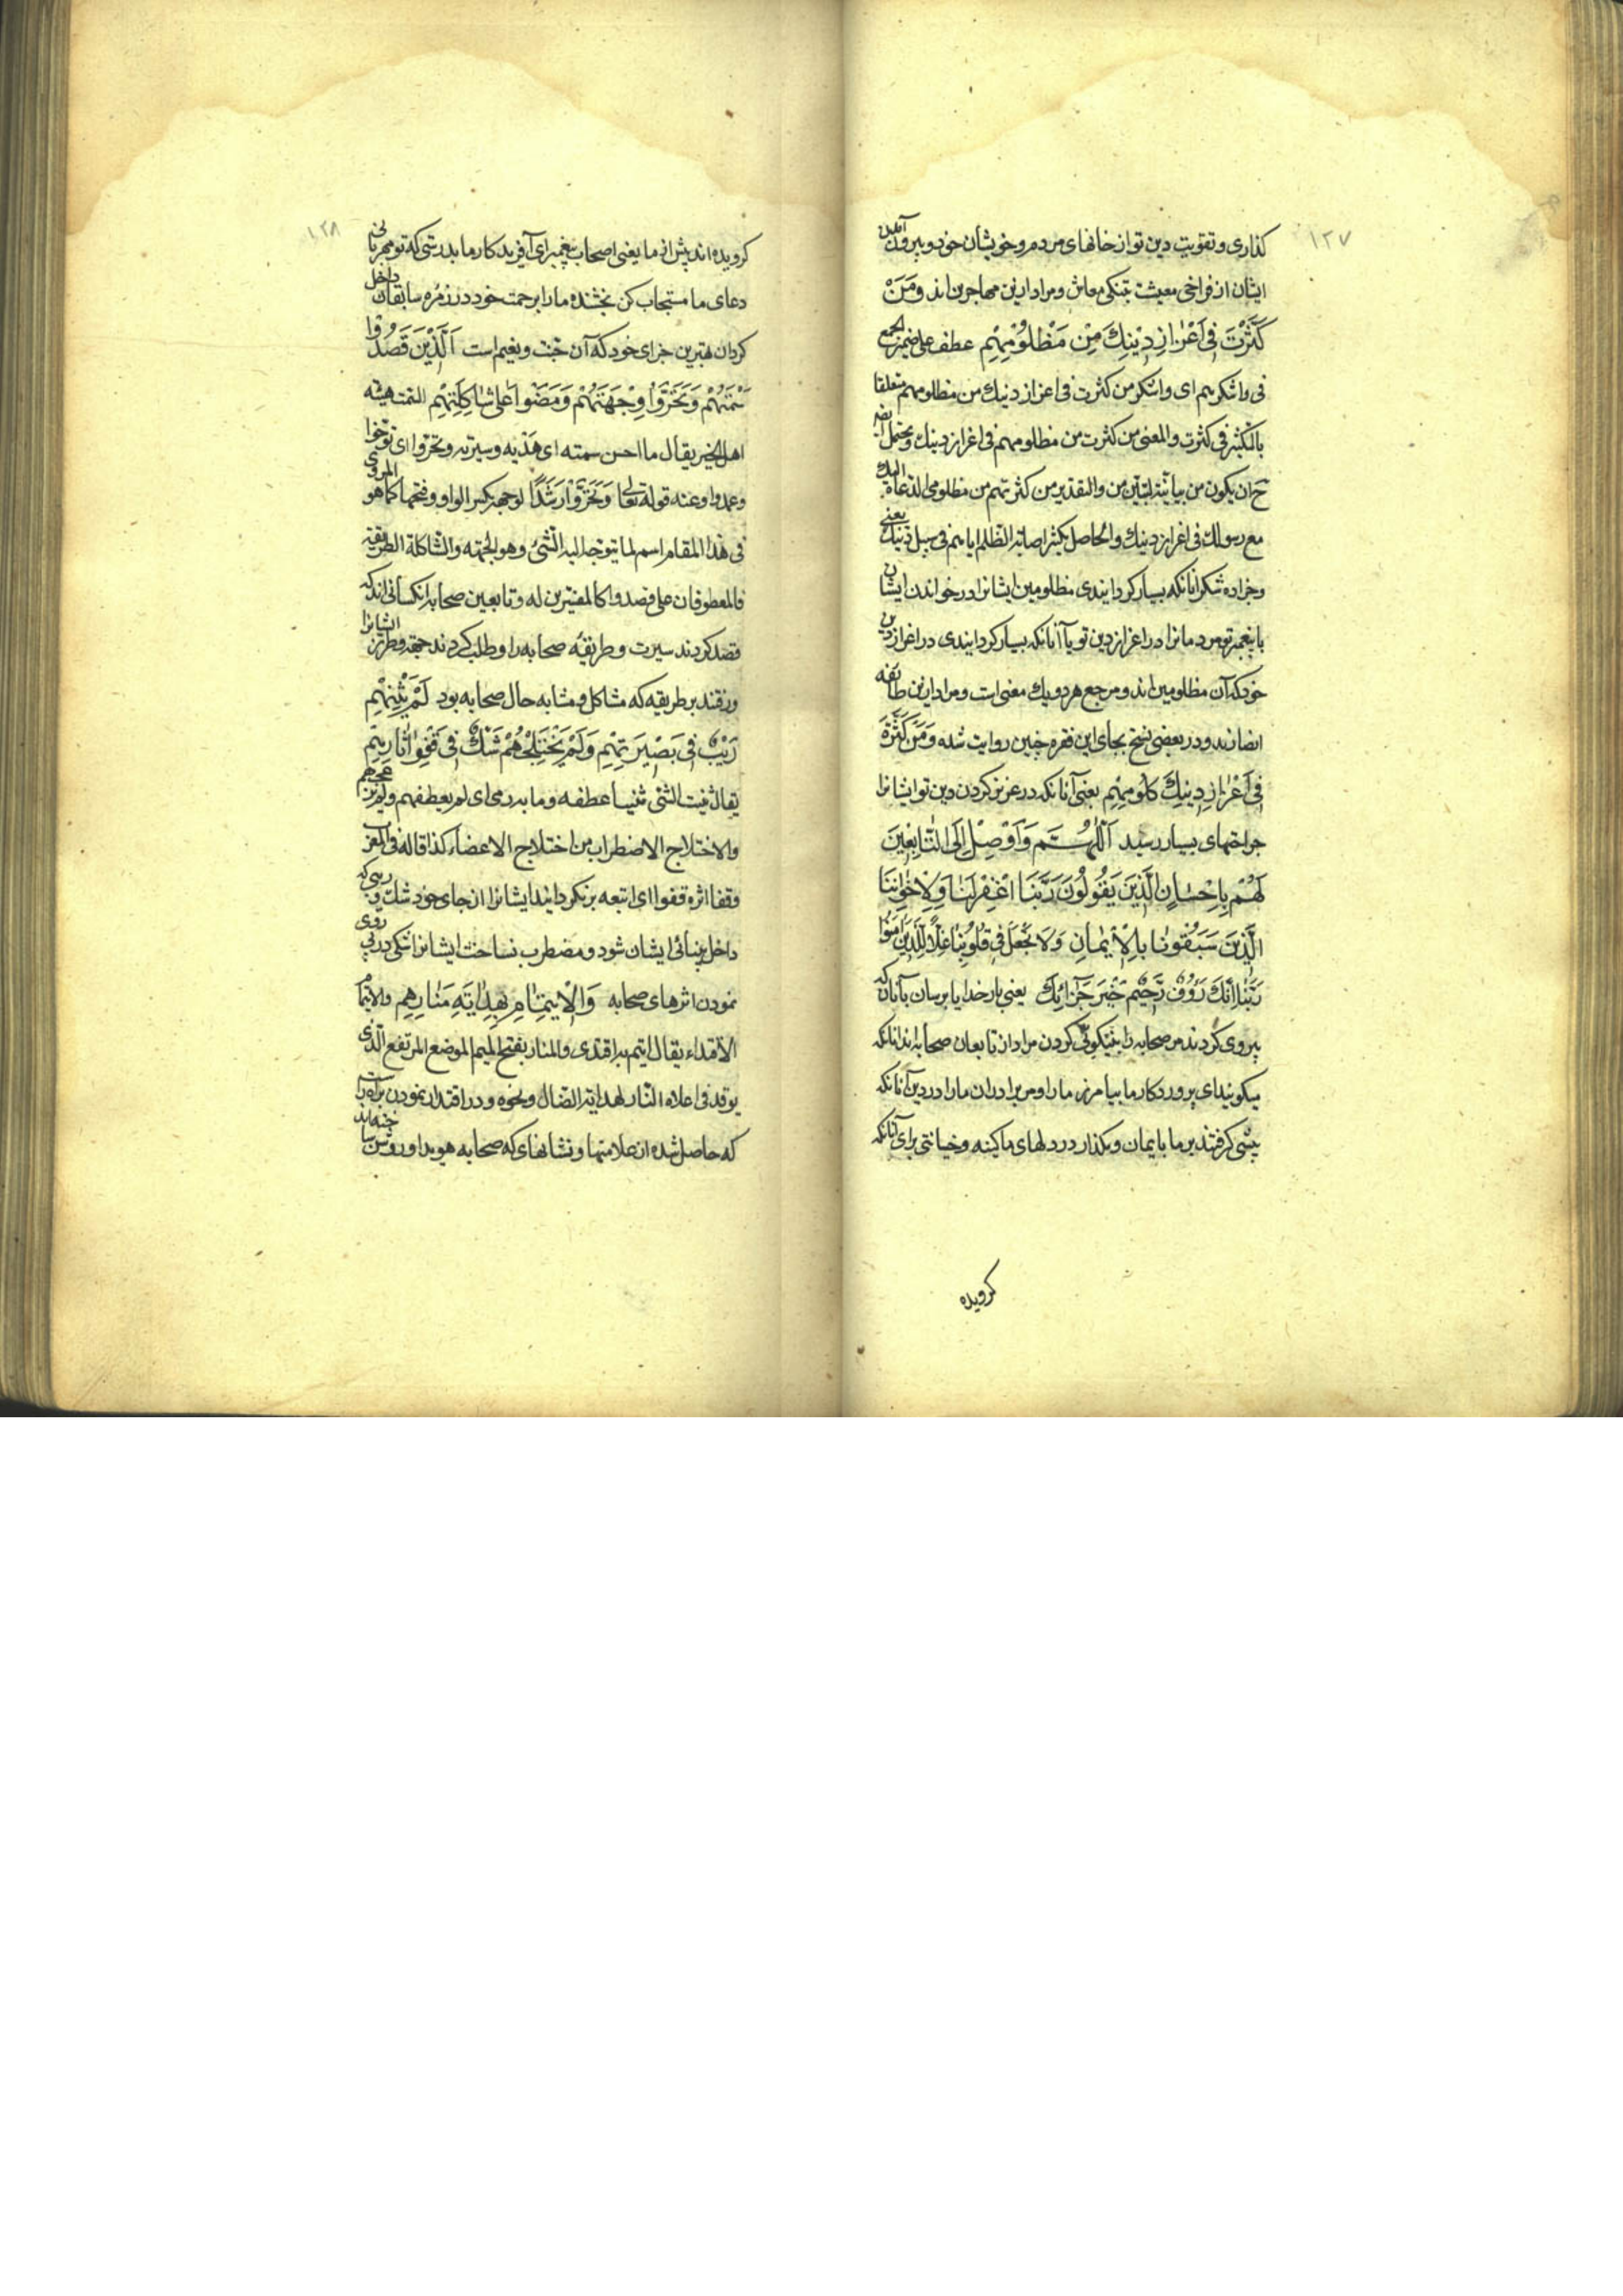 ١٢٧
كذاری و تقویت دین تو از خانهای مردم و خویشان خود و بیرون آمدن
ایشان از فراخی معیشت بتنکی معاش و مراد ازین مهاجرین اند وَمَنْ
كَثَّرْتَ فِی اِعْزَازِ دِیْنِكَ مِنْ مَظْلُوْمِهِمْ عطف علی ضمیر الجمع
فی واشكرهم ای واشكر من كثرت فی اعزاز دینك من مظلومهم متعلقا
بالتكثیر فی كثرت والمعنی من كثرت من مظلومهم فی اعزاز دینك ویحتمل ایضا
ح ان یكون من بیانیة لتبیین من والتقدیر من كثرتهم من مظلومی الدعاة الیك
مع رسولك فی اعزاز دینك والحاصل بكثیر اصابة الظلم ایاهم فی سبیل دینك یعنی
وجزا ده شكر انانكه بسیار كردانیدی مظلومین ایشانرا در خواندن ایشان
با پیغمبر تو مردمانرا در اعزاز دین تو یا آنانكه بسیار كردانیدی در اعزاز دین
خود كه آن مظلومین اند و مرجع هر دو یك معنی است و مراد ازین طایفه
انصارند و در بعضی نسخ بجای این فقره چنین روایت شده وَمَنْ كَثْرَة
فِی اِعْزَازِ دِینِكَ كُلُومِهِمْ یعنی آنانكه در عزیز كردن دین تو ایشانرا
جراحتهای بسیار رسید اَللّٰهُمَّ وَاَوْصِلْ اِلَی التَّابِعِینَ
لَهُمْ بِاِحْسَانٍ الَّذِینَ یَقُولُونَ رَبَّنَا اغْفِرْ لَنَا وَلِاِخْوَانِنَا
الَّذِینَ سَبَقُونَا بِالْاِیْمَانِ وَلَا تَجْعَلْ فِی قُلُوبِنَا غِلًّا لِلَّذِینَ اٰمَنُوا
رَبَّنَا اِنَّكَ رَؤُفٌ رَحِیْمٌ خَیْرَ جَزَائِكَ یعنی بار خدایا برسان بآنان كه
پیروی كردند مر صحابه را بنیكوئی كردن مراد از تابعان صحابه اند انانكه
میكویند ای پروردكار ما بیامرز ما را و مر برادران ما را در دین آنانكه
پیشی كرفتند بر ما بایمان و مكذار در دلهای ما كینه و خیانتی برای آنانكه
كرویده
١٢٨
كرویده اند پیش از ما یعنی اصحاب پیغمبر ای آفریدكار ما بدرستی كه تو مهربانی
دعای ما مستجاب كن بخشنده ما را برحمت خود در زمره سابقان داخل
كردان بهترین جزای خود كه آن جنت و نعیم است اَلَّذِیْنَ قَصَدُوْا
سَمْتَهُمْ وَتَحَرَّوْا وِجْهَتَهُمْ وَمَضَوْا عَلٰی شَاكِلَتِهِمْ السمت هیئه
اهل الخیر یقال ما احسن سمته ای هدیه وسیرته وتحروا ای توخوا
وعمدوا وعنه قوله تعالی تَحَرَّوْا رَشَدًا لوجهة بكسر الواو وفتحها كما هو المروی
فی هذا المقام اسم لما یتوجه الیه الشئ وهو الجهة والشاكلة الطریقة
والمعطوفان علی قصدوا كالمفسرین له و تابعین صحابه آنكسانی اند كه
قصد كردند سیرت و طریقه صحابه را و طلب كردند جهة و طرز ایشانرا
و رفتند بر طریقه كه مشاكل و مشابه حال صحابه بود لَمْ یَثْنِهِمْ
رَیْبٌ فِی بَصِیْرَتِهِمْ وَلَمْ یَخْتَلِجْهُمْ شَكٌّ فِی قَفْوِ اٰثَارِهِمْ
یقال ثنیت الشئ ثنیا عطفه وما به رمی ای لم یعطفهم ولم
والاختلاج الاضطراب من اختلاج الاعضاء كذا قاله فی المغرب
وقفا اثره قفوا ای اتبعه برنكردانید ایشانرا از جای خود شك و ریبی كه
داخل بینائی ایشان شود و مضطرب نساخت ایشانرا شكی در پی روی
نمودن اثرهای صحابه وَالْاِیْتِمَامِ بِهِدَایَةِ مَنَارِهِمْ والایتمام
الاقتداء یقال ایتم به اقتدی والمنار بفتح المیم الموضع المرتفع الذی
یوقد فی اعلاه النار لهدایة الضال ونحوه و در اقتدا نمودن براه راست
كه حاصل شده از علامتها و نشانهای كه صحابه هویدا و روشن ساخته اند